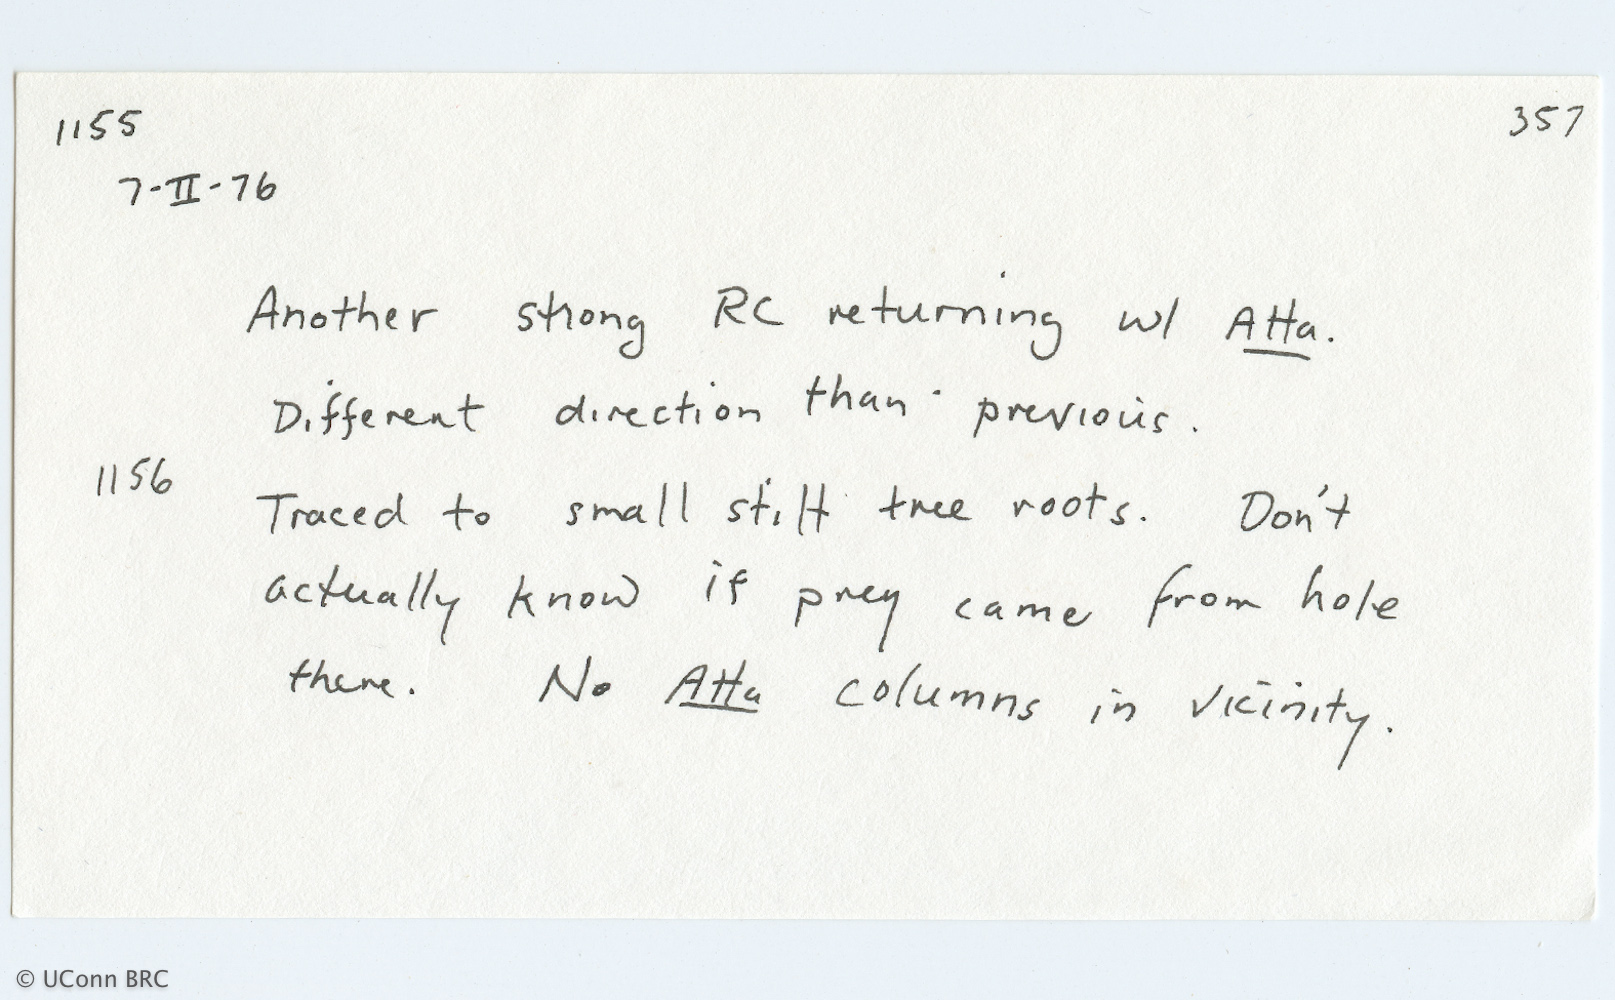 1155
357
7-II-76
Another strong RC returning w/ Atta.
Different direction than previous.
1156
Traced to small stilt tree roots. Don't
actually know if prey came from hole
there. No Atta columns in vicinity.
© UConn BRC